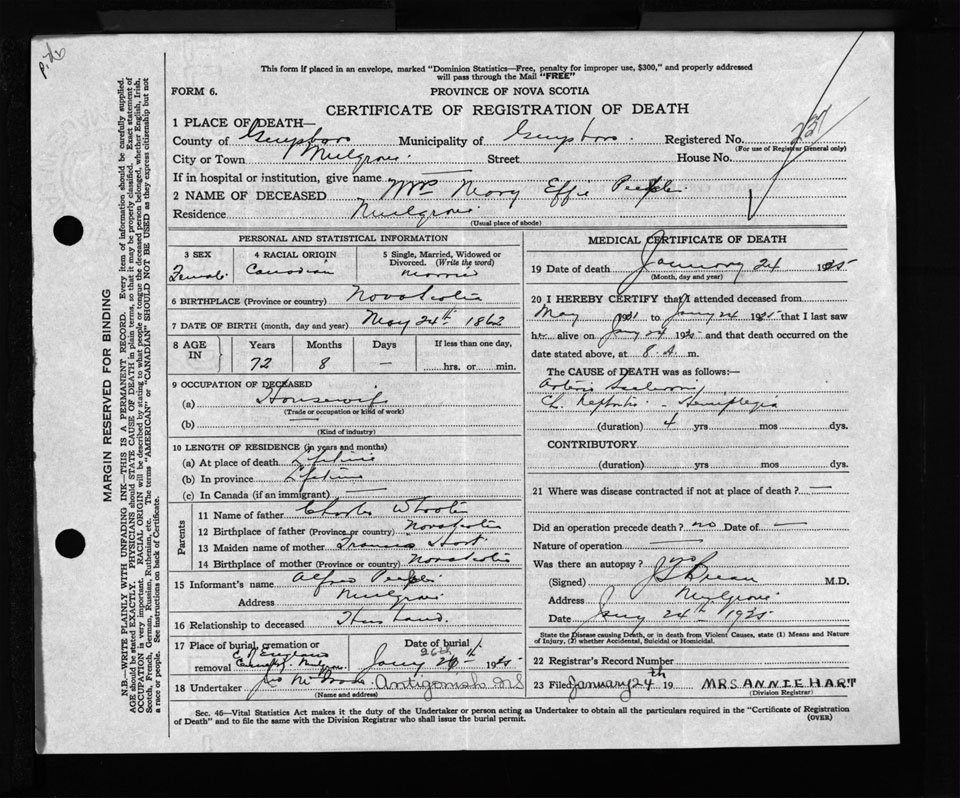 This form if placed in an envelope, marked "Dominion Statistics—Free, penalty for improper use, $300," and properly addressed
will pass through the Mail "FREE"
FORM 6.
PROVINCE OF NOVA SCOTIA
CERTIFICATE OF REGISTRATION OF DEATH
1 PLACE OF DEATH—
County of Guysboro Municipality of Guysboro Registered No.
(For use of Registrar General only)
City or Town Mulgrave Street House No.
If in hospital or institution, give name —
2 NAME OF DECEASED Mrs Mary Effie
Residence Mulgrave
(Usual place of abode)
PERSONAL AND STATISTICAL INFORMATION
3 SEX
Female
4 RACIAL ORIGIN
Canadian
5 Single, Married, Widowed or
Divorced. (Write the word)
Married
6 BIRTHPLACE (Province or country) Nova Scotia
7 DATE OF BIRTH (month, day and year) May 24th 1862
8 AGE IN
Years Months Days If less than one day,
72 8 — hrs. or min.
9 OCCUPATION OF DECEASED
(a) Housewife
(Trade or occupation or kind of work)
(b) —
(Kind of industry)
10 LENGTH OF RESIDENCE (in years and months)
(a) At place of death Lifetime
(b) In province Lifetime
(c) In Canada (if an immigrant) —
Parents
11 Name of father Charles
12 Birthplace of father (Province or country) Nova Scotia
13 Maiden name of mother Francis Hart
14 Birthplace of mother (Province or country) Nova Scotia
15 Informant's name Alfred
Address Mulgrave
16 Relationship to deceased Husband
17 Place of burial, cremation or
removal C of England
Mulgrave
Date of burial
26th
Jany 1935
18 Undertaker Antigonish NS
(Name and address)
MEDICAL CERTIFICATE OF DEATH
19 Date of death January 24 1935
(Month, day and year)
20 I HEREBY CERTIFY that I attended deceased from
May 1931 to Jany 24 1935 that I last saw
her alive on Jany 24 1935 and that death occurred on the
date stated above, at 8 A. m.
The CAUSE OF DEATH was as follows:—
Arterio Sclerosis
Ch. Nephritis - Hemiplegia
(duration) 4 yrs mos dys.
CONTRIBUTORY
(duration) yrs mos dys.
21 Where was disease contracted if not at place of death? —
Did an operation precede death? no Date of —
Nature of operation —
Was there an autopsy? no
(Signed) M.D.
Address Mulgrave
Date Jany 24th 1935
State the Disease causing Death, or in death from Violent Causes, state (1) Means and Nature
of Injury, (2) whether Accidental, Suicidal or Homicidal.
22 Registrar's Record Number
23 Filed January 24th 19 MRS ANNIE HART
(Division Registrar)
Sec. 46—Vital Statistics Act makes it the duty of the Undertaker or person acting as Undertaker to obtain all the particulars required in the "Certificate of Registration
of Death" and to file the same with the Division Registrar who shall issue the burial permit.
(OVER)
MARGIN RESERVED FOR BINDING
N.B.—WRITE PLAINLY WITH UNFADING INK—THIS IS A PERMANENT RECORD. Every item of information should be carefully supplied.
AGE should be stated EXACTLY. PHYSICIANS should STATE CAUSE OF DEATH in plain terms, so that it may be properly classified. Exact statement of
OCCUPATION is very important. RACIAL ORIGIN will be described by stating to what people or tongue the deceased person belonged, whether English, Irish,
Scotch, French, German, Russian, Ruthenian, etc. The terms "AMERICAN" or "CANADIAN" SHOULD NOT BE USED as they express citizenship but not
a race or people. See instructions on back of Certificate.